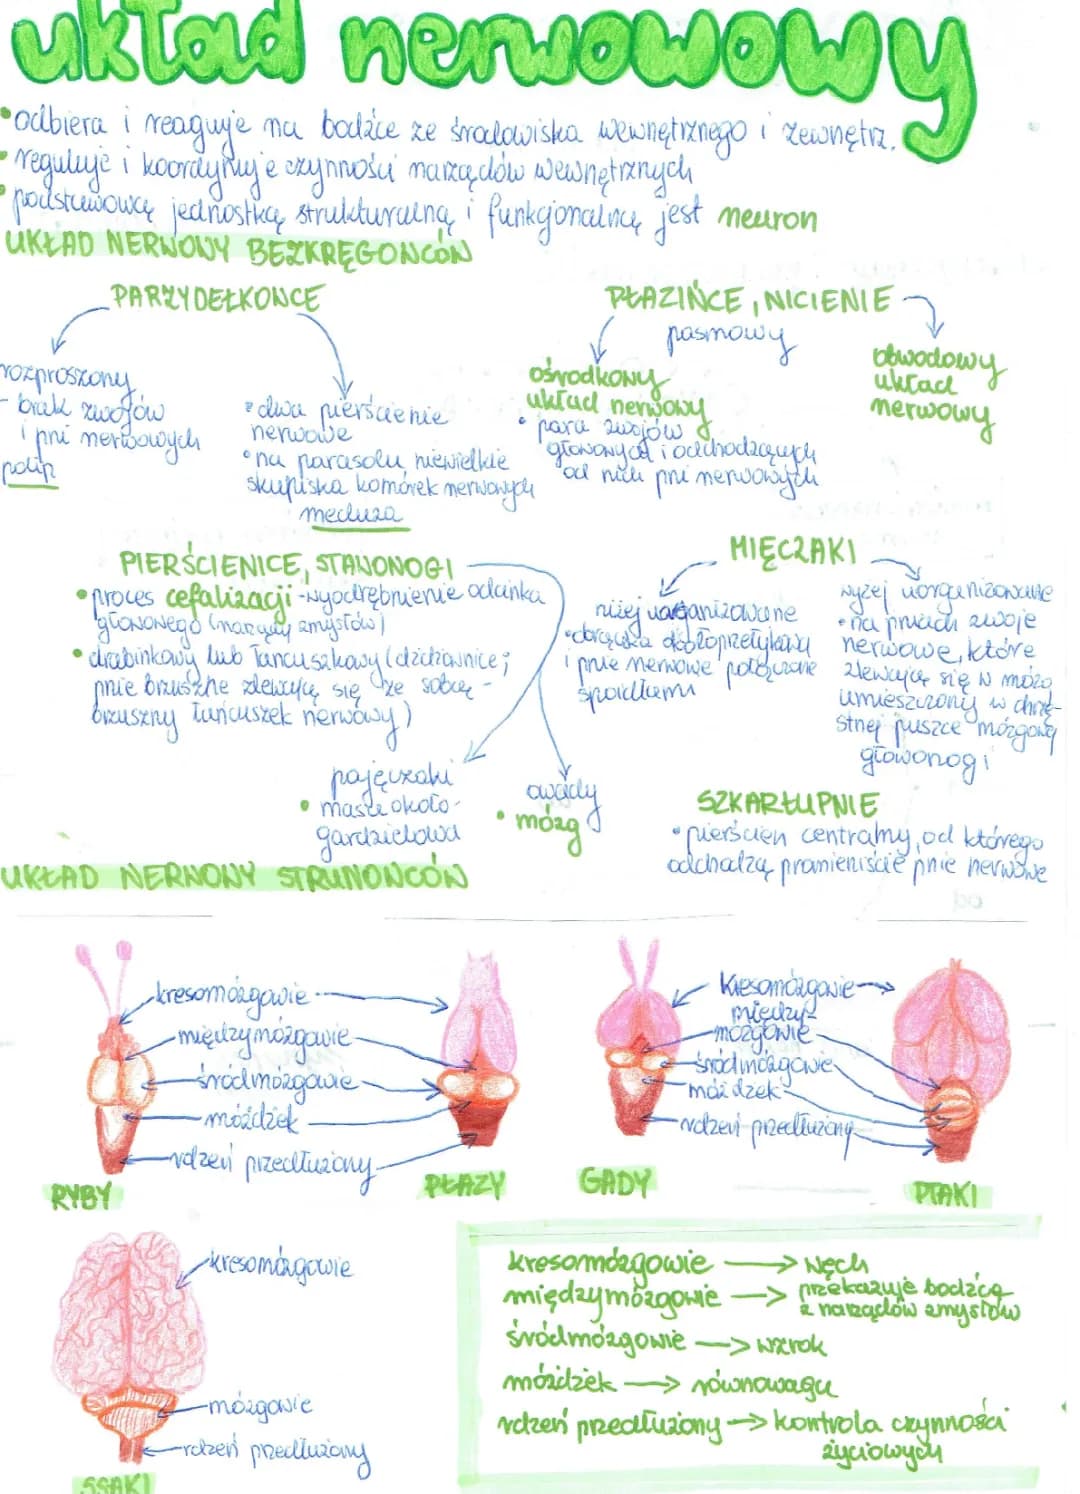 układ nerwowy
• odbiera i reaguje na bodźce ze środowiska wewnętrznego i zewnętrz.
• reguluje i koordynuje czynności narządów wewnętrznych
• podstawową jednostką strukturalną i funkcjonalną jest neuron
UKŁAD NERWOWY BEZKRĘGOWCÓW
PARZYDEŁKOWCE
rozproszony
- brak zwojów
i pni nerwowych
polip
• dwa pierścienie
nerwowe
• na parasolu niewielkie
skupiska komórek nerwowych
meduza
PŁAZIŃCE, NICIENIE
pasmowy
ośrodkowy
układ nerwowy
• para zwojów
głowowych i odchodzących
od nich pni nerwowych
obwodowy
układ
nerwowy
PIERŚCIENICE, STAWONOGI
• proces cefalizacji - wyodrębnienie odcinka
głowowego (narządy zmysłów)
• drabinkowy lub łańcuszkowy (dżdżownice;
pnie brzuszne zlewają się ze sobą -
brzuszny łańcuszek nerwowy)
pajęczaki
• masa około-
gardzielowa
owady
• mózg
MIĘCZAKI
niżej uorganizowane
• obrączka okołoprzełykowa
i pnie nerwowe połączone
spoidłami
wyżej uorganizowane
• na pniach zwoje
nerwowe, które
zlewają się w mózg
umieszczony w chrzę-
stnej puszce mózgowej
głowonogi
SZKARŁUPNIE
• pierścień centralny, od którego
odchodzą promieniście pnie nerwowe
UKŁAD NERWOWY STRUNOWCÓW
kresomózgowie
międzymózgowie
śródmózgowie
móżdżek
rdzeń przedłużony
RYBY
PŁAZY
kresomózgowie
między-
mózgowie
śródmózgowie
móżdżek
rdzeń przedłużony
GADY
PTAKI
kresomózgowie
mózgowie
rdzeń przedłużony
SSAKI
kresomózgowie → węch
międzymózgowie → przekazuje bodźce
z narządów zmysłów
śródmózgowie → wzrok
móżdżek → równowaga
rdzeń przedłużony → kontrola czynności
życiowych